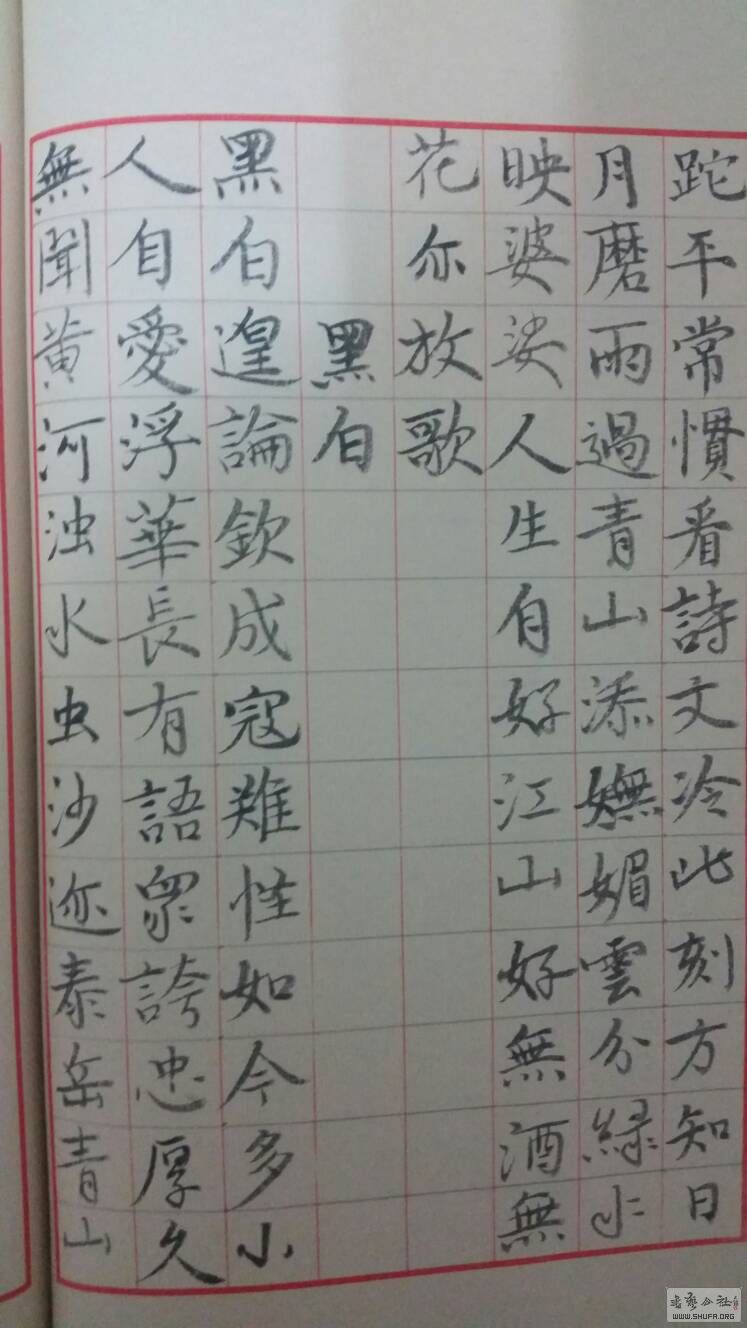 跎平常慣看詩文冷此刻方知日
月磨雨過青山添嫵媚雲分綠水
映婆娑人生自好江山好無酒無
花亦放歌
黑白
黑白遑論欽成寇難怪如今多小
人自愛浮華長有語眾誇忠厚久
無聞黃河浊水虫沙迹泰岳青山
WWW.SHUFA.ORG